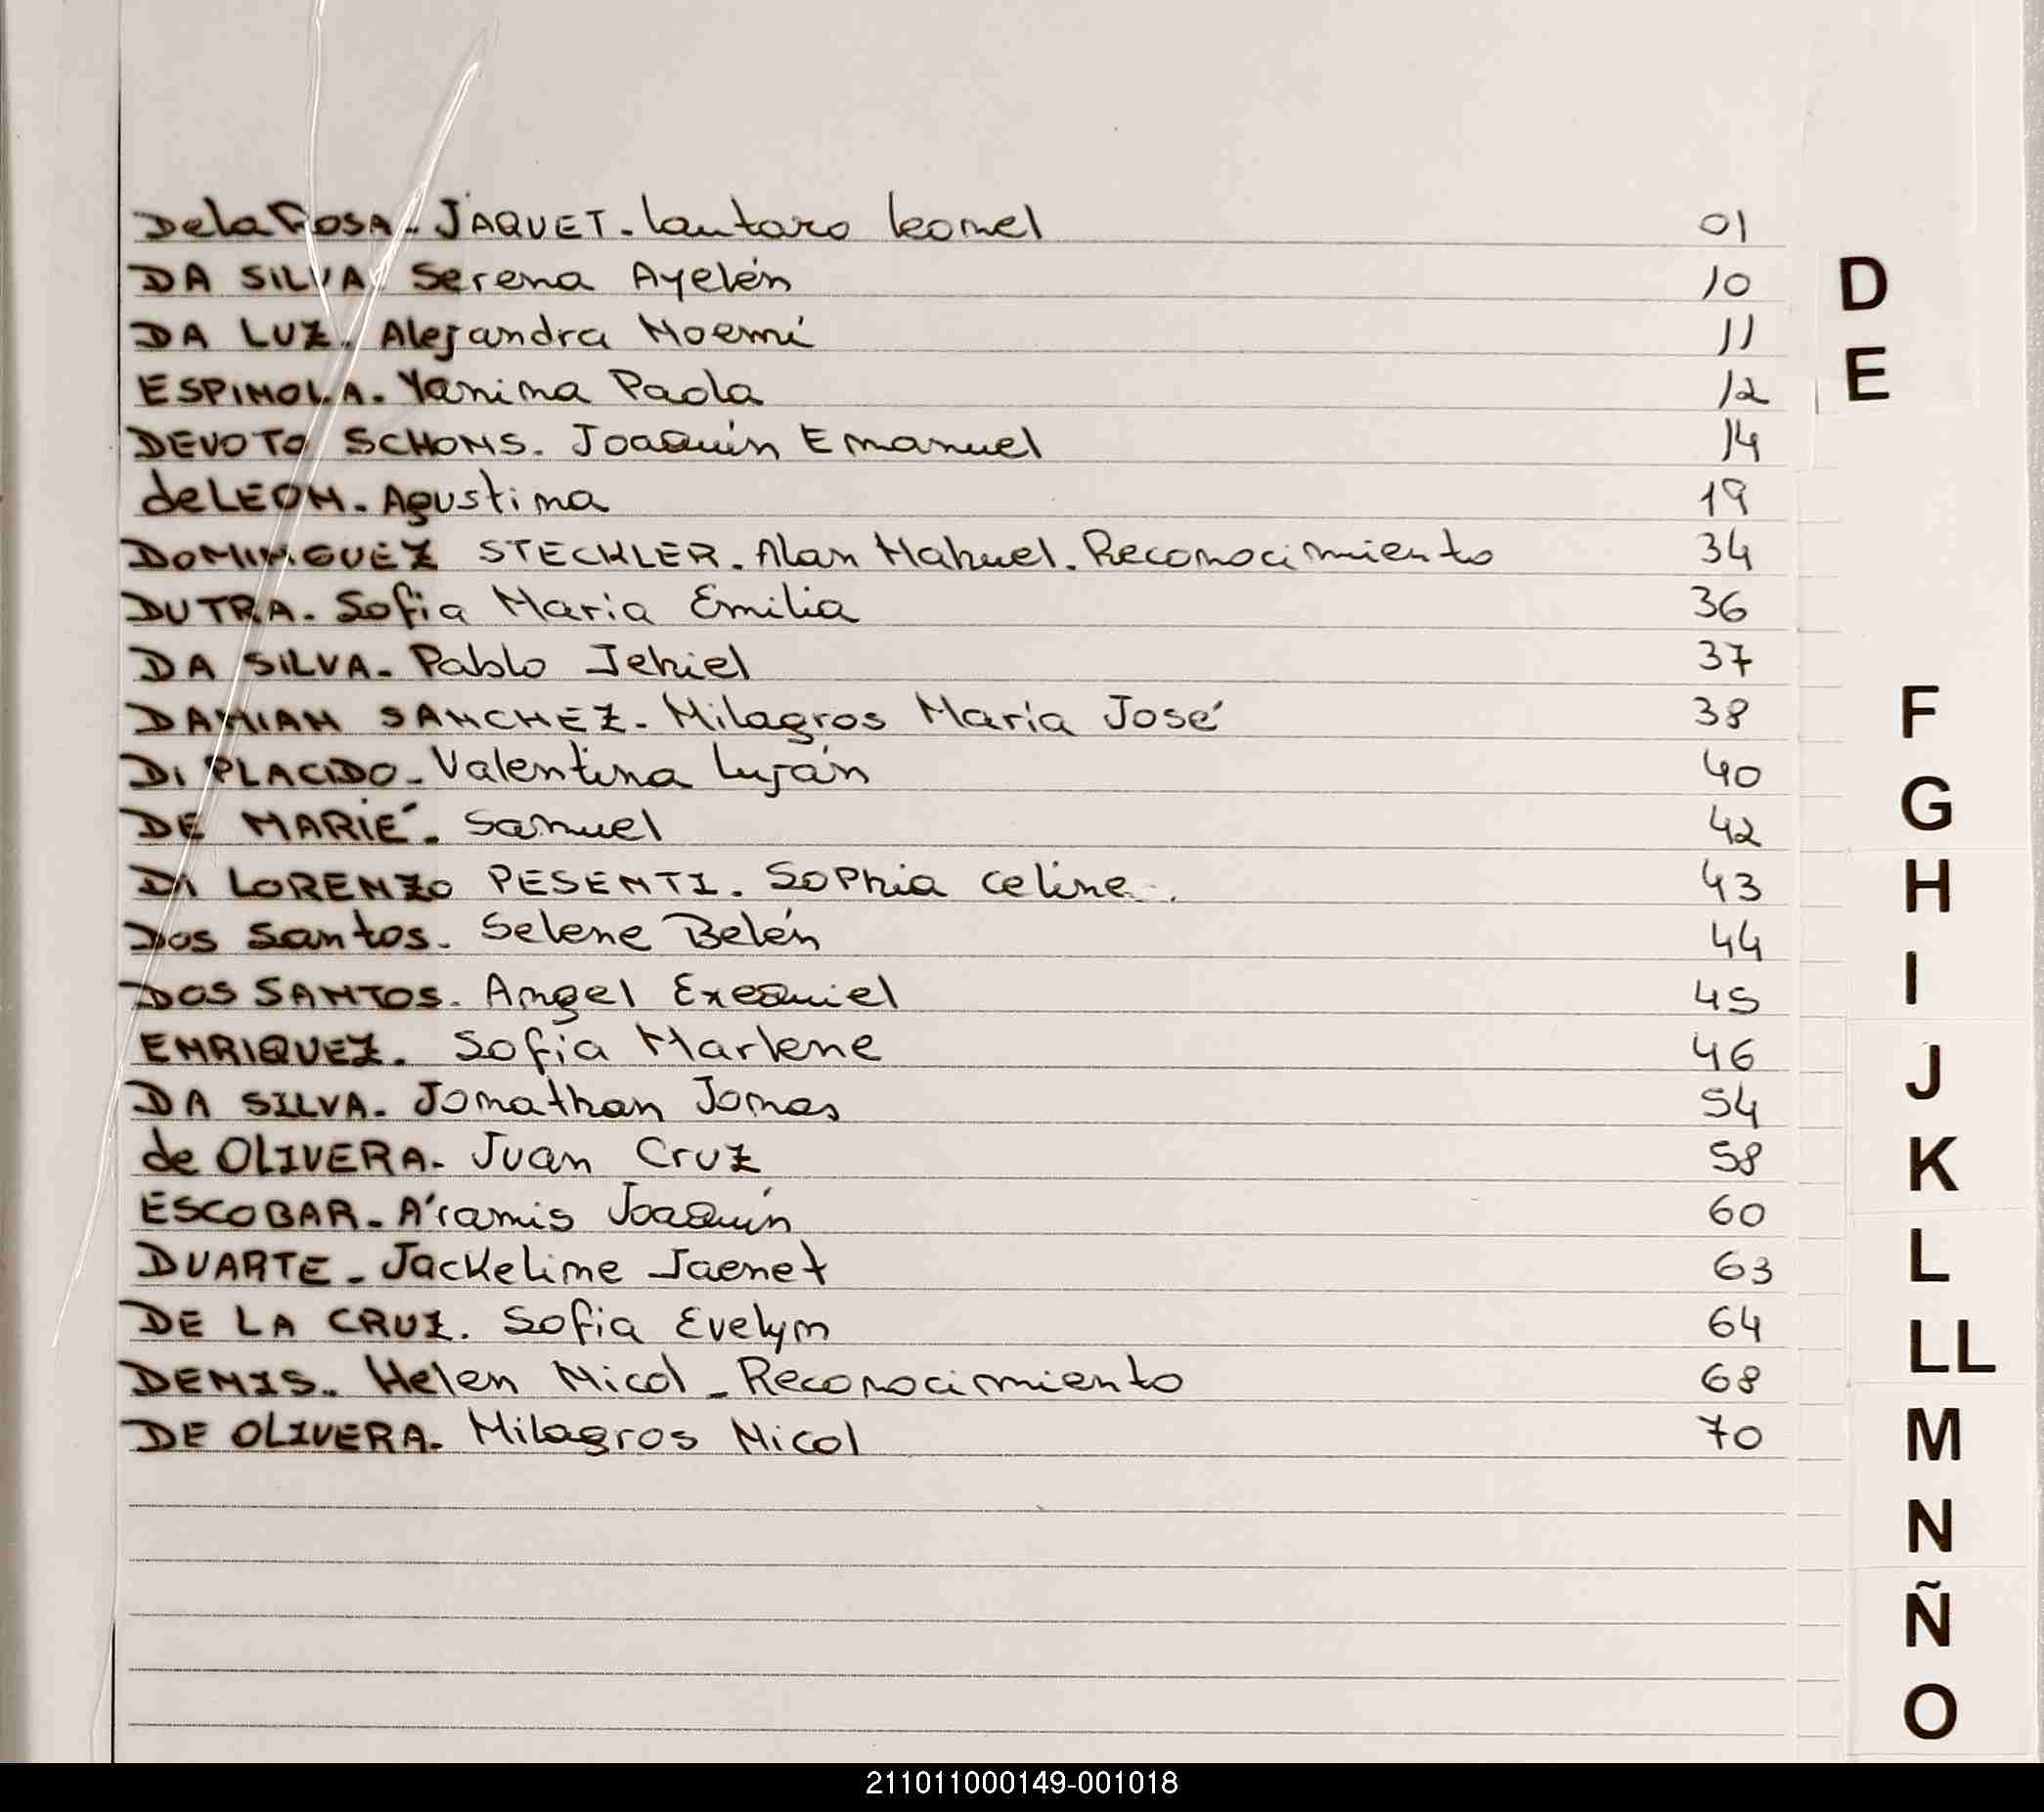 De la Rosa - JAQUET. Lautaro Leonel 01
DA SILVA. Serena Ayelén 10
DA LUZ. Alejandra Noemí 11
ESPINOLA. Yanina Paola 12
DEVOTO SCHONS. Joaquín Emanuel 14
de LEON. Agustina 19
DOMINGUEZ STECKLER. Alan Nahuel. Reconocimiento 34
DUTRA. Sofia Maria Emilia 36
DA SILVA. Pablo Jehiel 37
DAMIAN SANCHEZ. Milagros María José 38
Di PLACIDO. Valentina Luján 40
DE MARIÉ. Samuel 42
Di LORENZO PESENTI. Sophia Celine. 43
Dos Santos. Selene Belén 44
DOS SANTOS. Angel Exequiel 45
ENRIQUEZ. Sofía Marlene 46
DA SILVA. Jonathan Jonas 54
de OLIVERA. Juan Cruz 58
ESCOBAR. Áramis Joaquín 60
DUARTE. Jackeline Jaenet 63
DE LA CRUZ. Sofia Evelyn 64
DENIS. Helen Nicol - Reconocimiento 68
DE OLIVERA. Milagros Nicol 70
D
E
F
G
H
I
J
K
L
LL
M
N
Ñ
O
211011000149-001018